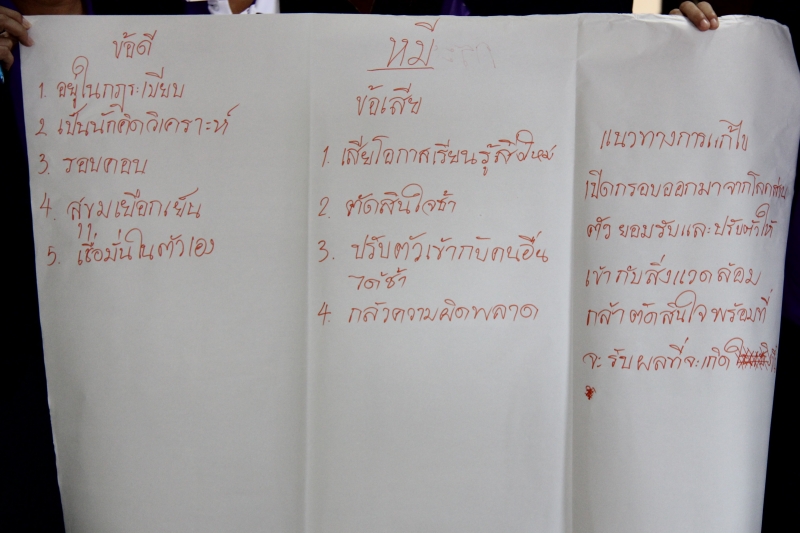 หมี
ข้อดี
1. อยู่ในกฎระเบียบ
2 เป็นนักคิดวิเคราะห์
3. รอบคอบ
4. สุขุมเยือกเย็น
5. เชื่อมั่นในตัวเอง
ข้อเสีย
1. เสียโอกาสเรียนรู้สิ่งใหม่
2. ตัดสินใจช้า
3. ปรับตัวเข้ากับคนอื่น
ได้ช้า
4. กลัวความผิดพลาด
แนวทางการแก้ไข
เปิดกรอบออกมาจากโลกส่วน
ตัว ยอมรับและปรับตัวให้
เข้ากับสิ่งแวดล้อม
กล้าตัดสินใจพร้อมที่
จะรับผลที่จะเกิด